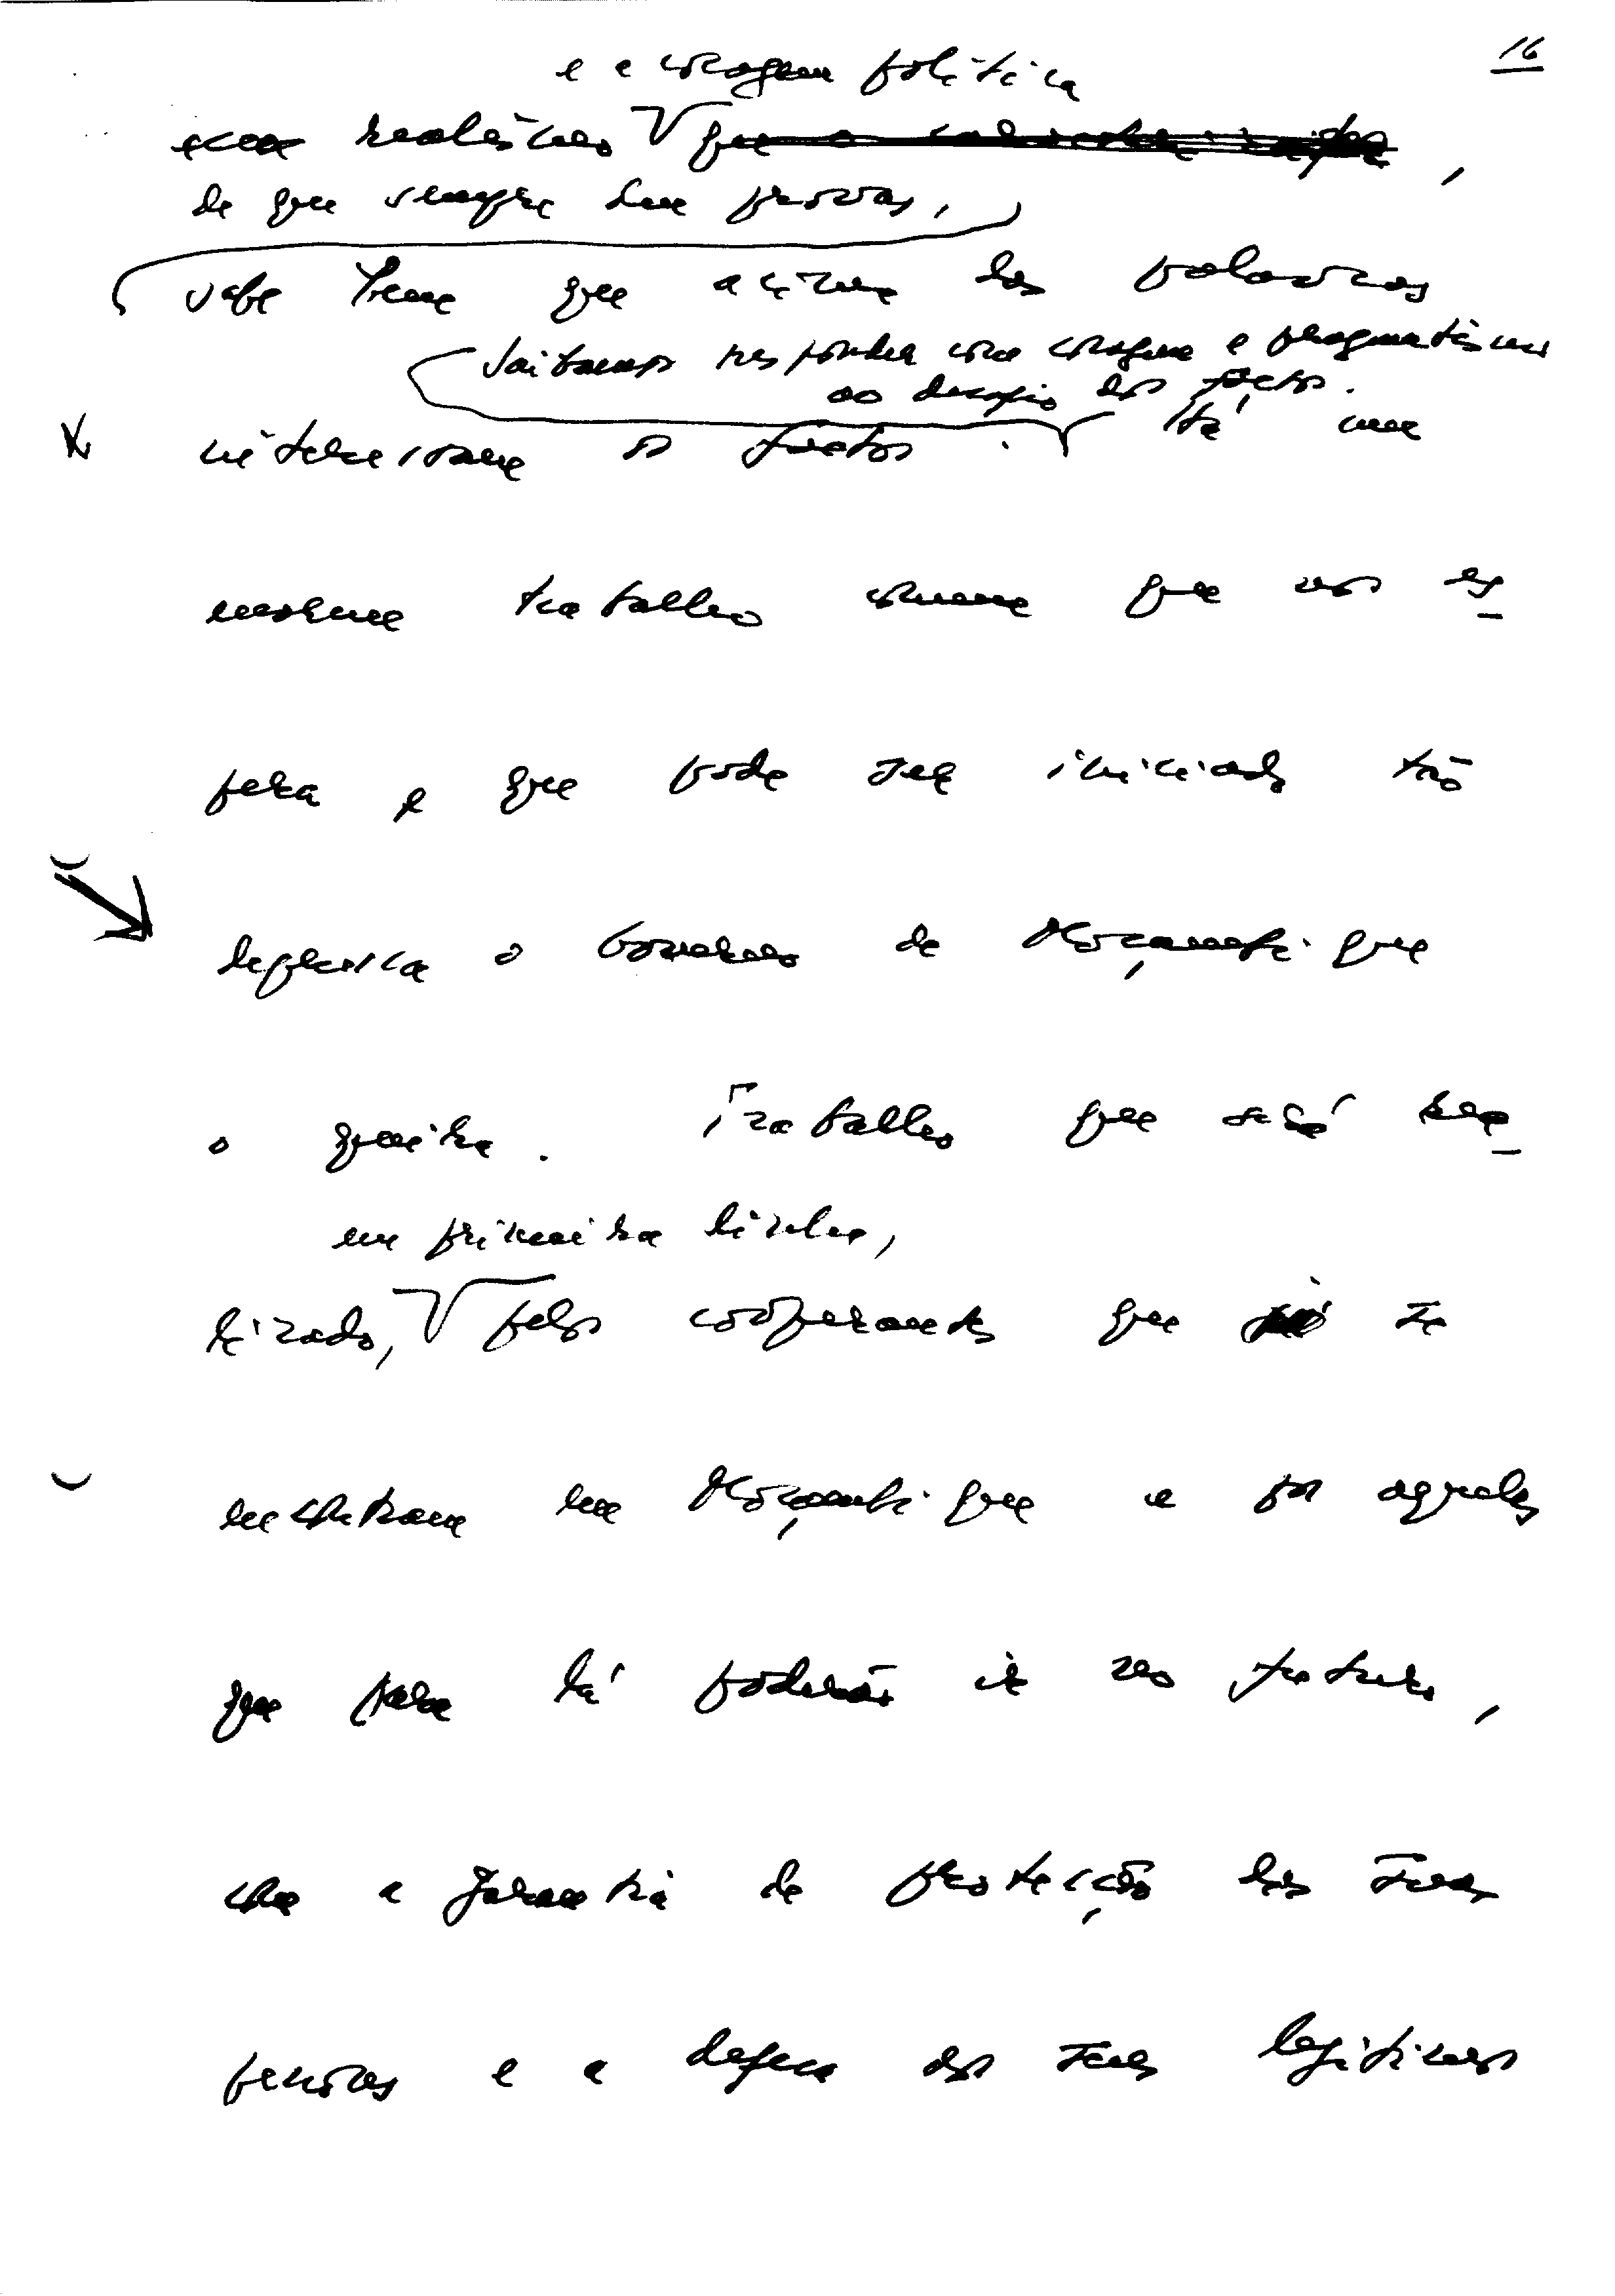 16
e a coragem política
com realismo que
de que sempre deu provas,
sabe bem que acima das palavras
Saibamos responder com coragem e pragmatismo
ao desafio dos factos.
os factos. Há um
enorme trabalho comum que nos es-
pera e que pode ser iniciado tão
depressa o Governo de Moçambique
o queira. Trabalho que será rea-
em primeira linha,
lizado, pelos cooperantes que já se
encontram em Moçambique e por aqueles
que para lá poderão ir no futuro,
com a garantia de protecção das suas
pessoas e a defesa dos seus legítimos